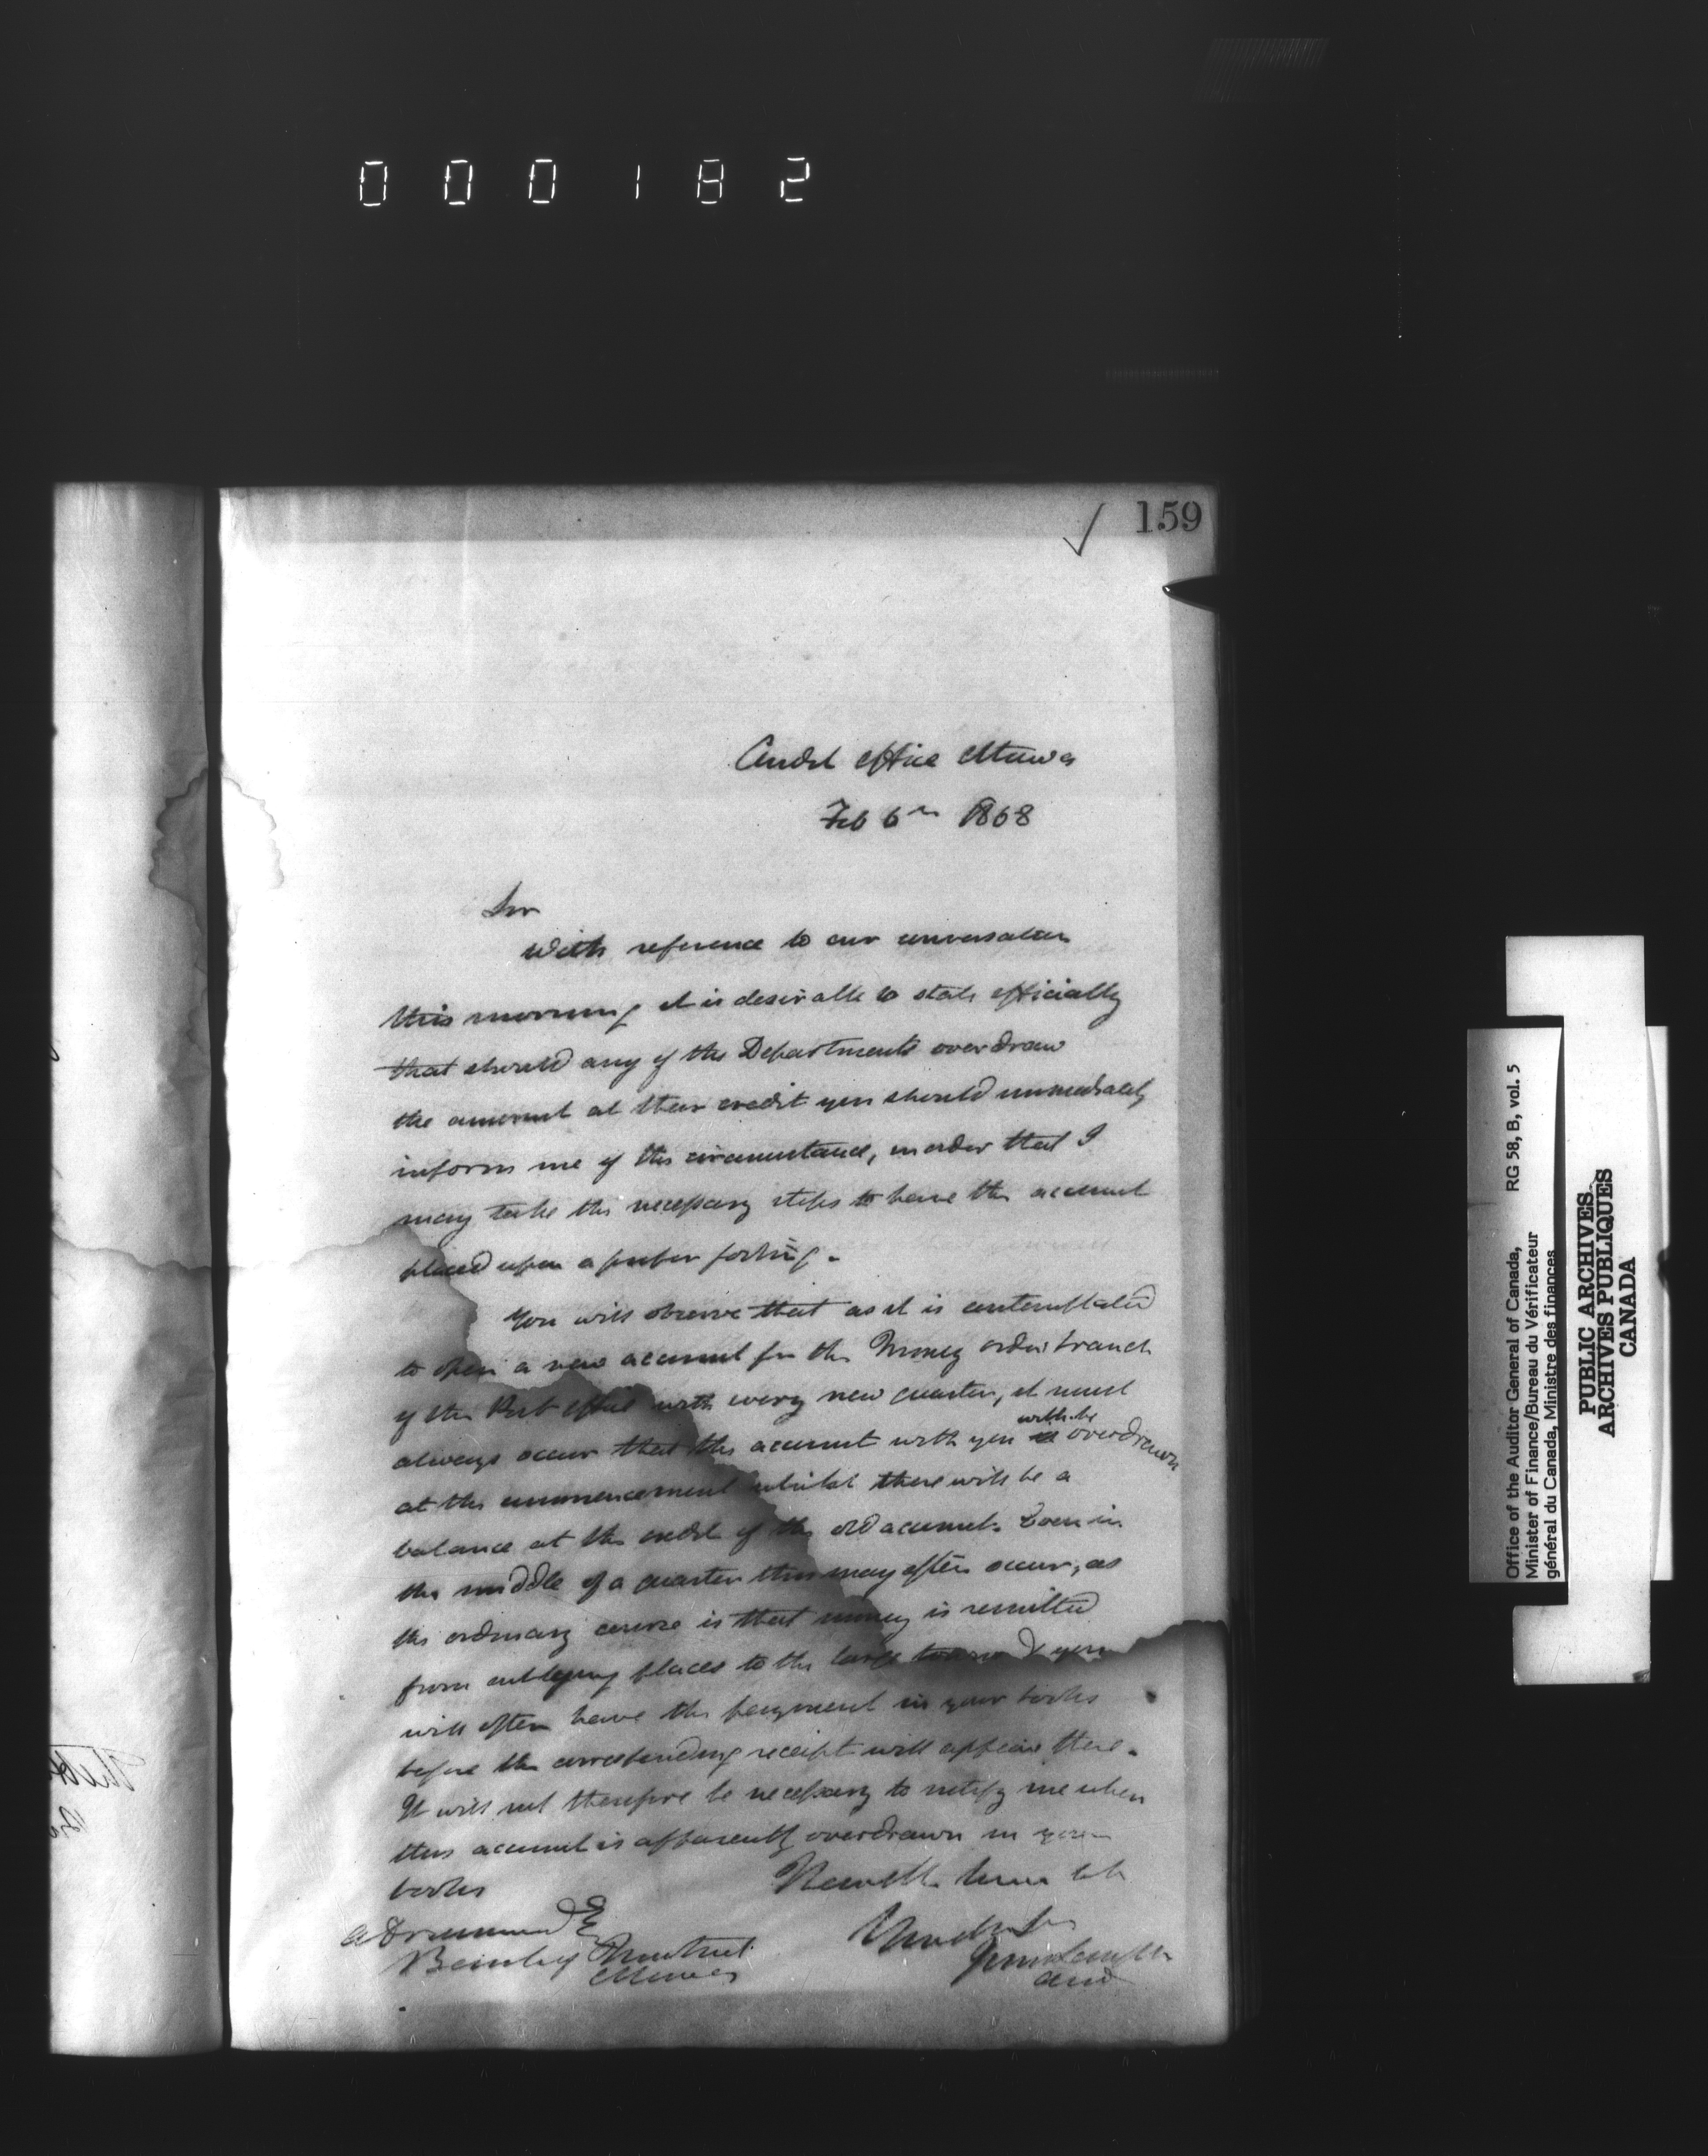 000182
159
Audit Office Ottawa
Feb 6th 1868
Sir
With reference to our conversation
this morning it is desirable to state officially
that should any of the Departments overdraw
the amount at their credit you should immediately
inform me of the circumstance, in order that I
may take the necessary steps to have the account
placed upon a proper footing.
You will observe that as it is contemplated
to open a new account for the Money order branch
of the Post Office with every new quarter, it must
always occur that the account with you will be overdrawn
at the commencement whilst there will be a
balance at the credit of the old account. Even in
the middle of a quarter this may often occur, as
the ordinary course is that money is remitted
from outlying places to the large towns & you
will often have the payment in your books
before the corresponding receipt will appear there.
It will not therefore be necessary to notify me when
this account is apparently overdrawn in your
books
I have the honor to be
A Drummond Esq
Bank of Montreal
Ottawa
John Langton
Aud
Office of the Auditor General of Canada, RG 58, B, vol. 5
Minister of Finance/Bureau du Vérificateur
général du Canada, Ministre des finances
PUBLIC ARCHIVES
ARCHIVES PUBLIQUES
CANADA